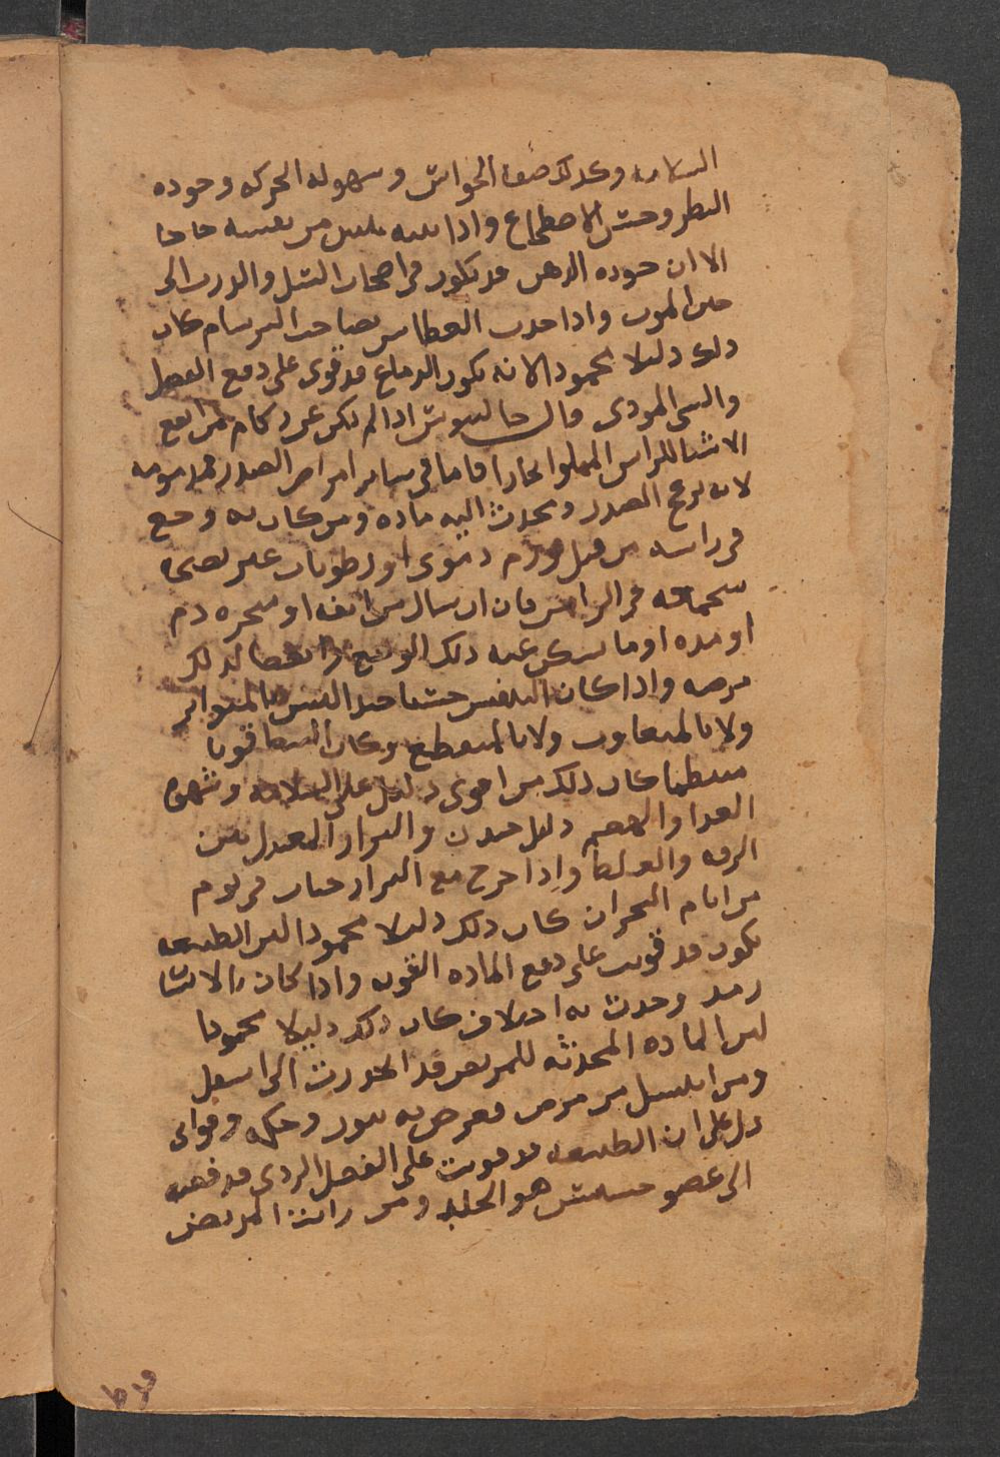 السلامه وكذلك صفا الحواس وسهوله الحركه وجوده
النظر وحسن الاضطجاع واذا نبه بلبس من نفسه
الا ان جوده الذهن قد تكون في اصحاب السل والذرب الى
حين الموت واذا حدث العطاس بصاحب البرسام كان
ذلك دليلا محمودا لانه يكون الدماغ قد قوي على دفع الفضل
والشي الموذي قال جالينوس اذا لم يكن عن زكام فمن انفع
الاشيا للراس المملوا بخارا فاما في ساير امراض الصدر فمذمومه
لانه يزعج الصدر ويحدث اليه ماده ومن كان به وجع
في راسه من قبل ورم دموي او رطوبات غير نضجه
في الراس فان اسال من انفه او منخره دم
او مده او ما سكن عنه ذلك الوجع وانقضا لذلك
مرضه واذا كان التنفس حسنا جيدا ليس بالمتواتر
ولا بالمتفاوت ولا بالمنقطع وكان النبض قويا
منتظما كان ذلك من اقوى دليل على السلامه وشهوه
الغذا والهضم دليل جيد والبراز المعتدل بين
الرقه والغلظ واذا خرج مع البراز حيات في يوم
من ايام البحران كان ذلك دليلا محمودا لان الطبيعه
تكون قد قويت على دفع الماده القويه واذا كان بالانسان
رمد وحدث به اختلاف كان ذلك دليلا محمودا
لان الماده المحدثه للمرض قد انحدرت الى اسفل
ومن من مرض فعرض به بثور وحكه وقوابي
دل على ان الطبيعه قد قويت على الفضل الردي قد فعته
الى عضو خسيس هو الجلد ومن رايت المريض